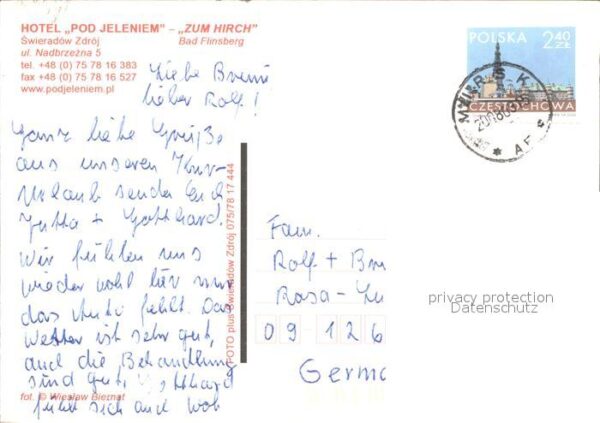 HOTEL „POD JELENIEM" – „ZUM HIRCH"
Świeradów Zdrój Bad Flinsberg
ul. Nadbrzeżna 5
tel. +48 (0) 75 78 16 383
fax +48 (0) 75 78 16 527
www.podjeleniem.pl
Liebe
lieber Rolf!
Ganz liebe Grüße
aus unseren Kur-
Urlaub senden Euch
Jutta + Gotthard.
Wir fühlen uns
wieder wohl hir nur
das Auto fehlt. Das
Wetter ist sehr gut,
auch die Behandlung
sind gut, Gotthard
fühlt sich auch woh
fot. © Wiesław Biernat
FOTO plus Świeradów Zdrój 075/78 17 444
POLSKA 2,40 ZŁ
CZĘSTOCHOWA
Fam.
Rolf + Br
Rosa-Lu
09126
Germa
privacy protection
Datenschutz